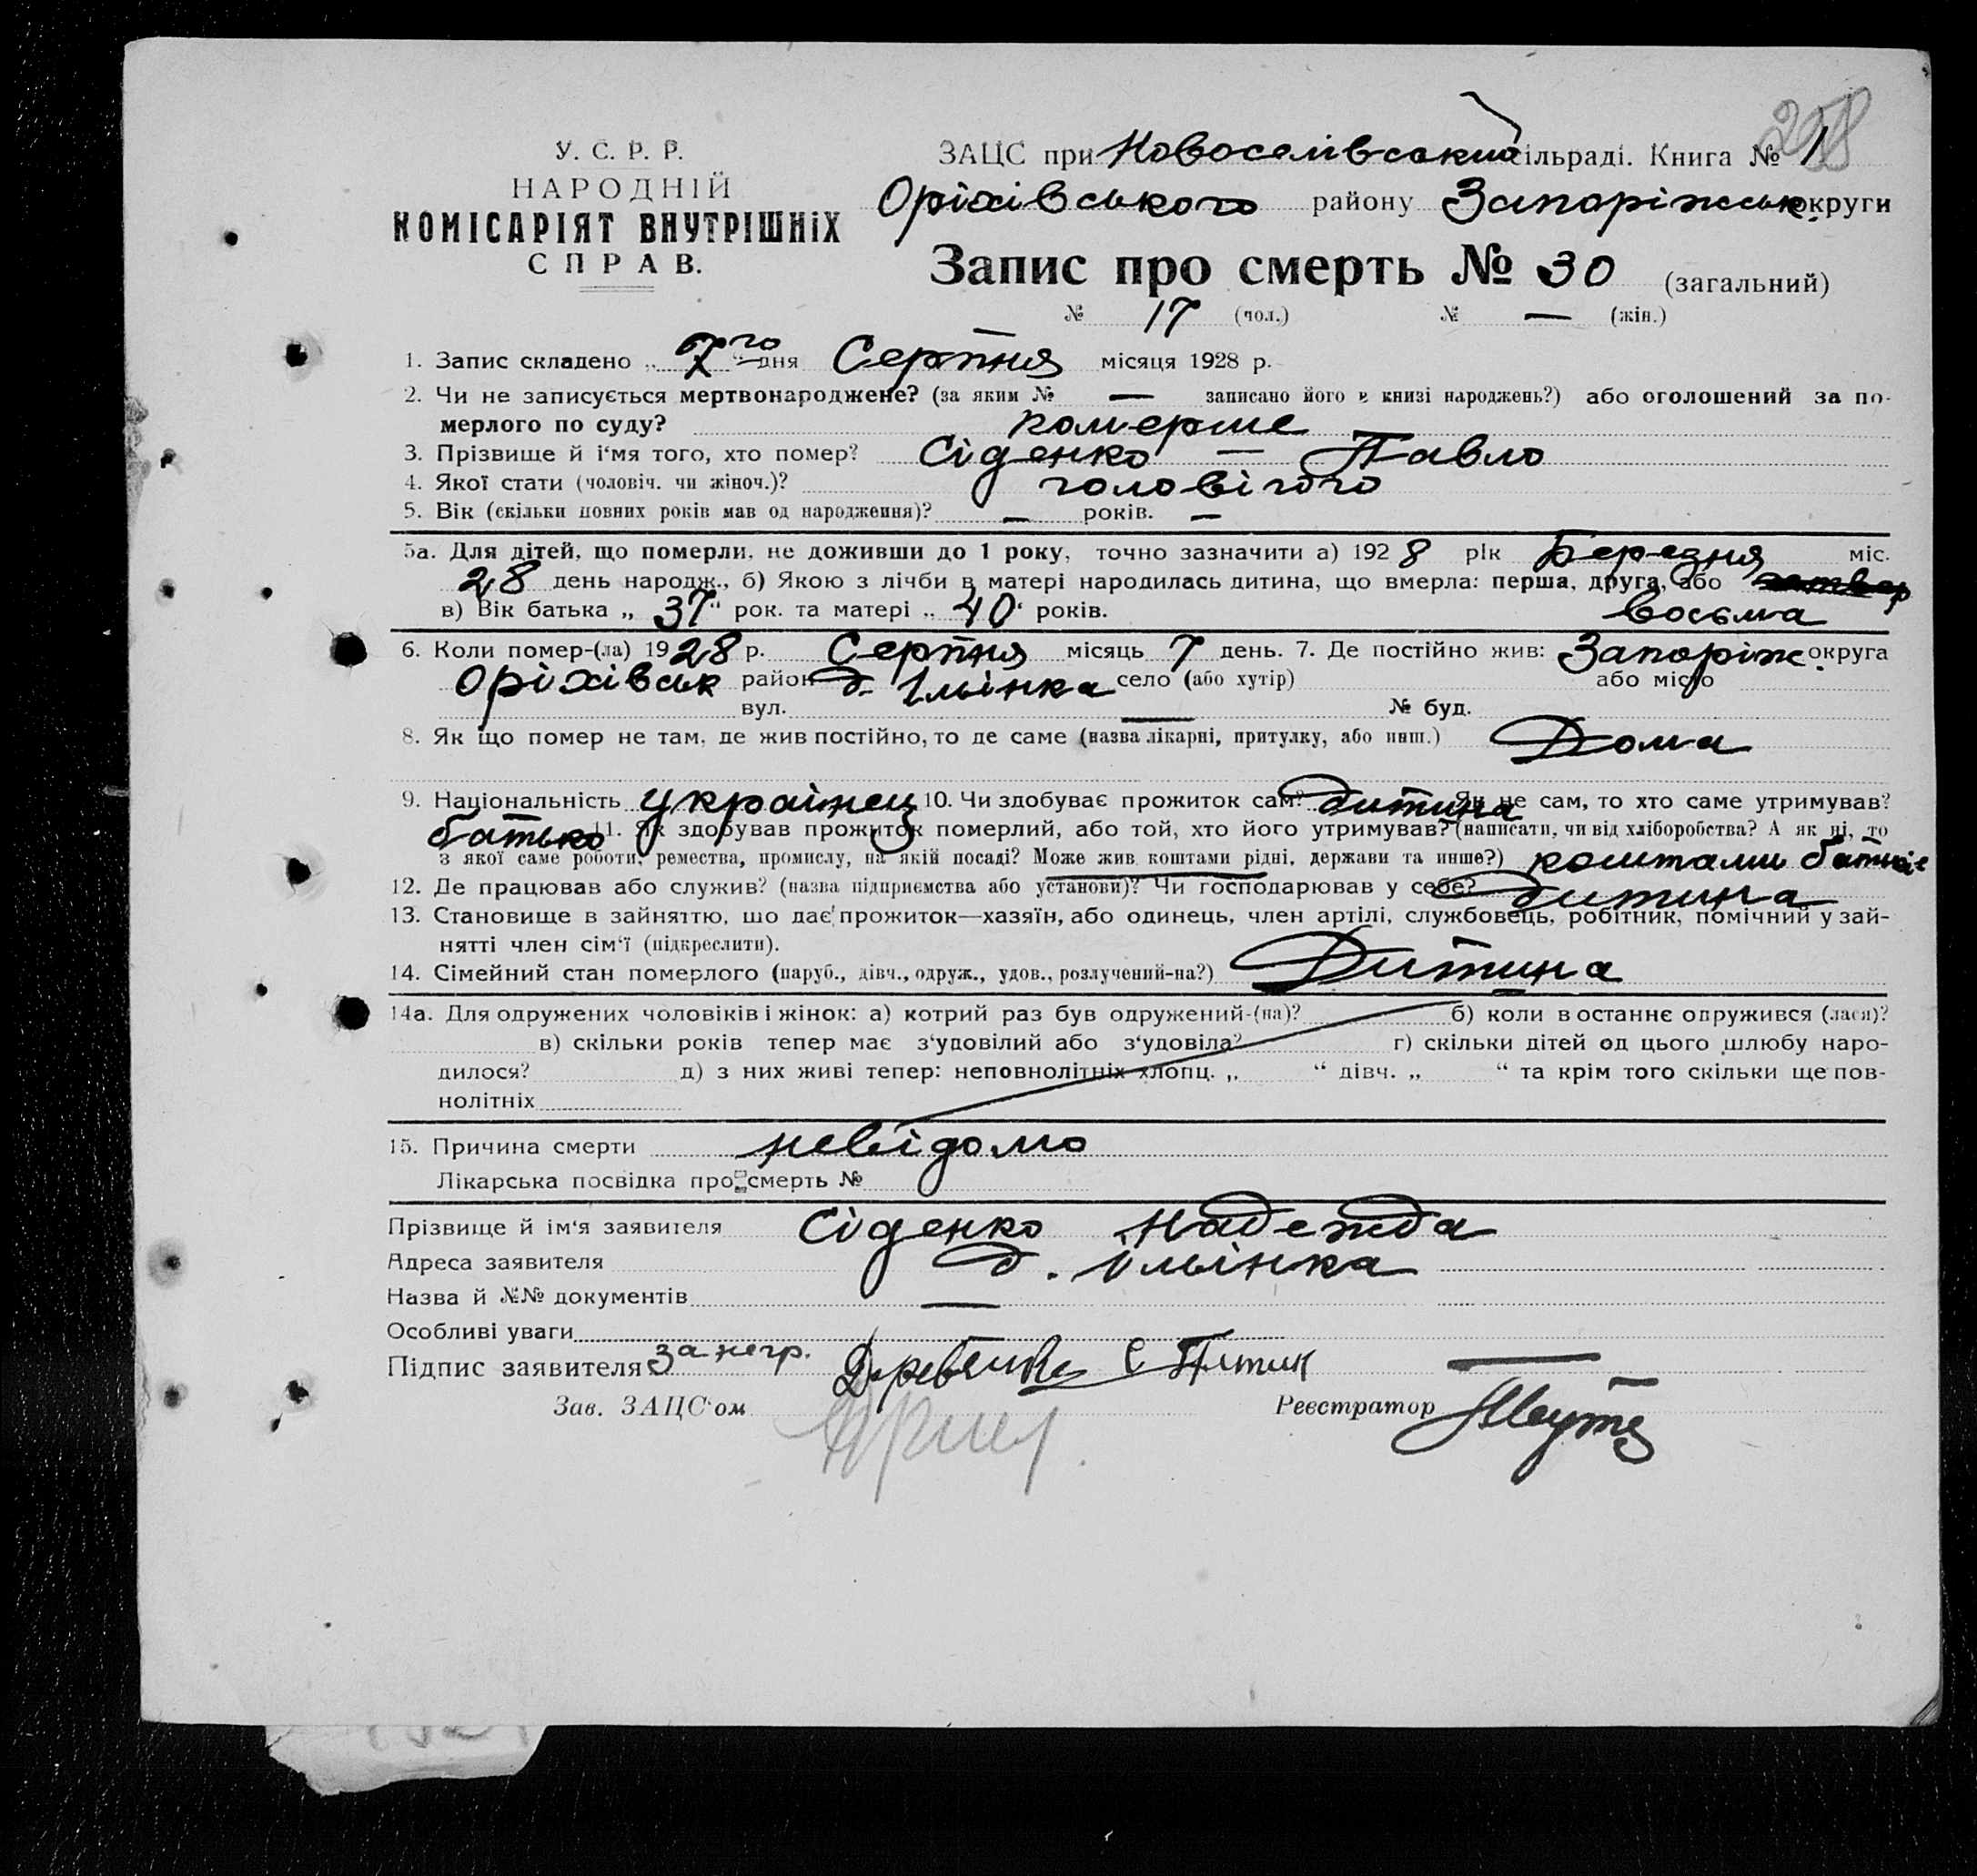 258
У. С. Р. Р.
НАРОДНІЙ
КОМІСАРІЯТ ВНУТРІШНІХ
СПРАВ.
ЗАЦС при Новоселівський сільраді. Книга № 1
Оріхівського району Запоріжськ. округи
Запис про смерть № 30 (загальний)
№ 17 (чол.) № — (жін.)
1. Запис складено „ 7го “ дня Серпня місяця 1928 р.
2. Чи не записується мертвонароджене? (за яким № — записано його в книзі народжень?) або оголошений за по-
мерлого по суду? померше
3. Прізвище й і'мя того, хто помер? Сіденко — Павло
4. Якої стати (чоловіч. чи жіноч.)? чоловічого
5. Вік (скільки повних років мав од народження)? — років. —
5а. Для дітей, що померли, не доживши до 1 року, точно зазначити а) 1928 рік Березня міс.
28 день народж., б) Якою з лічби в матері народилась дитина, що вмерла: перша, друга, або
в) Вік батька „ 37 “ рок. та матері „ 40 “ років. восьма
6. Коли помер-(ла) 1928 р. Серпня місяць 7 день. 7. Де постійно жив: Запоріж. округа
Оріхівськ район д. Ільїнка село (або хутір) або місто
вул. — № буд.
8. Як що помер не там, де жив постійно, то де саме (назва лікарні, притулку, або инш.) Дома
9. Національність українец 10. Чи здобуває прожиток сам? дитина Як не сам, то хто саме утримував?
батько 11. Як здобував прожиток померлий, або той, хто його утримував? (написати, чи від хліборобства? А як ні, то
з якої саме роботи, ремества, промислу, на якій посаді? Може жив коштами рідні, держави та инше?) коштами
12. Де працював або служив? (назва підприємства або установи)? Чи господарював у себе? Дитина
13. Становище в зайняттю, що дає прожиток—хазяїн, або одинець, член артілі, службовець, робітник, помічний у зай-
нятті член сім'ї (підкреслити).
14. Сімейний стан померлого (паруб., дівч., одруж., удов., розлучений-на?) Дитина
14а. Для одружених чоловіків і жінок: а) котрий раз був одружений-(на)? б) коли в останнє одружився (лася)?
в) скільки років тепер має з'удовілий або з'удовіла? г) скільки дітей од цього шлюбу наро-
дилося? д) з них живі тепер: неповнолітніх хлопц. „ “ дівч. „ “ та крім того скільки ще пов-
нолітніх
15. Причина смерти невідомо
Лікарська посвідка про смерть №
Прізвище й ім'я заявителя Сіденко Надежда
Адреса заявителя д. Ільїнка
Назва й №№ документів —
Особливі уваги
Підпис заявителя за негр. —
Зав. ЗАЦС'ом Реєстратор